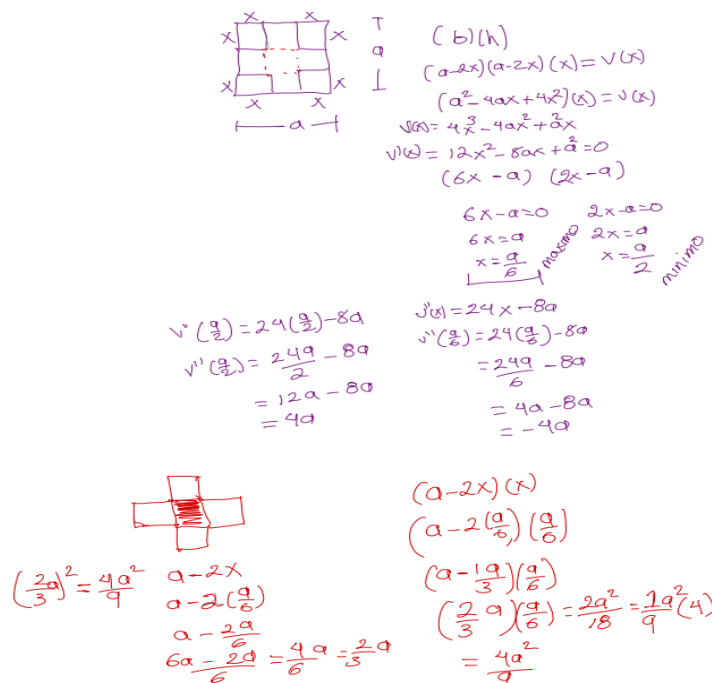 x x
x x
x x
x x
T
a
⊥
a
(b)(h)
(a-2x)(a-2x)(x)=V(x)
(a²-4ax+4x²)(x)=V(x)
V(x)=4x³-4ax²+a²x
V'(x)=12x²-8ax+a²=0
(6x-a) (2x-a)
6x-a=0 2x-a=0
6x=a 2x=a
x=a/6 maximo x=a/2 minimo
V''(x)=24x-8a
V''(a/6)=24(a/6)-8a
=24a/6-8a
=4a-8a
=-4a
V''(a/2)=24(a/2)-8a
V''(a/2)=24a/2-8a
=12a-8a
=4a
(2a/3)²=4a²/9
a-2x
a-2(a/6)
a-2a/6
6a-2a/6=4a/6=2/3a
(a-2x)(x)
(a-2(a/6))(a/6)
(a-1a/3)(a/6)
(2/3 a)(a/6)=2a²/18=1a²/9(4)
=4a²/9